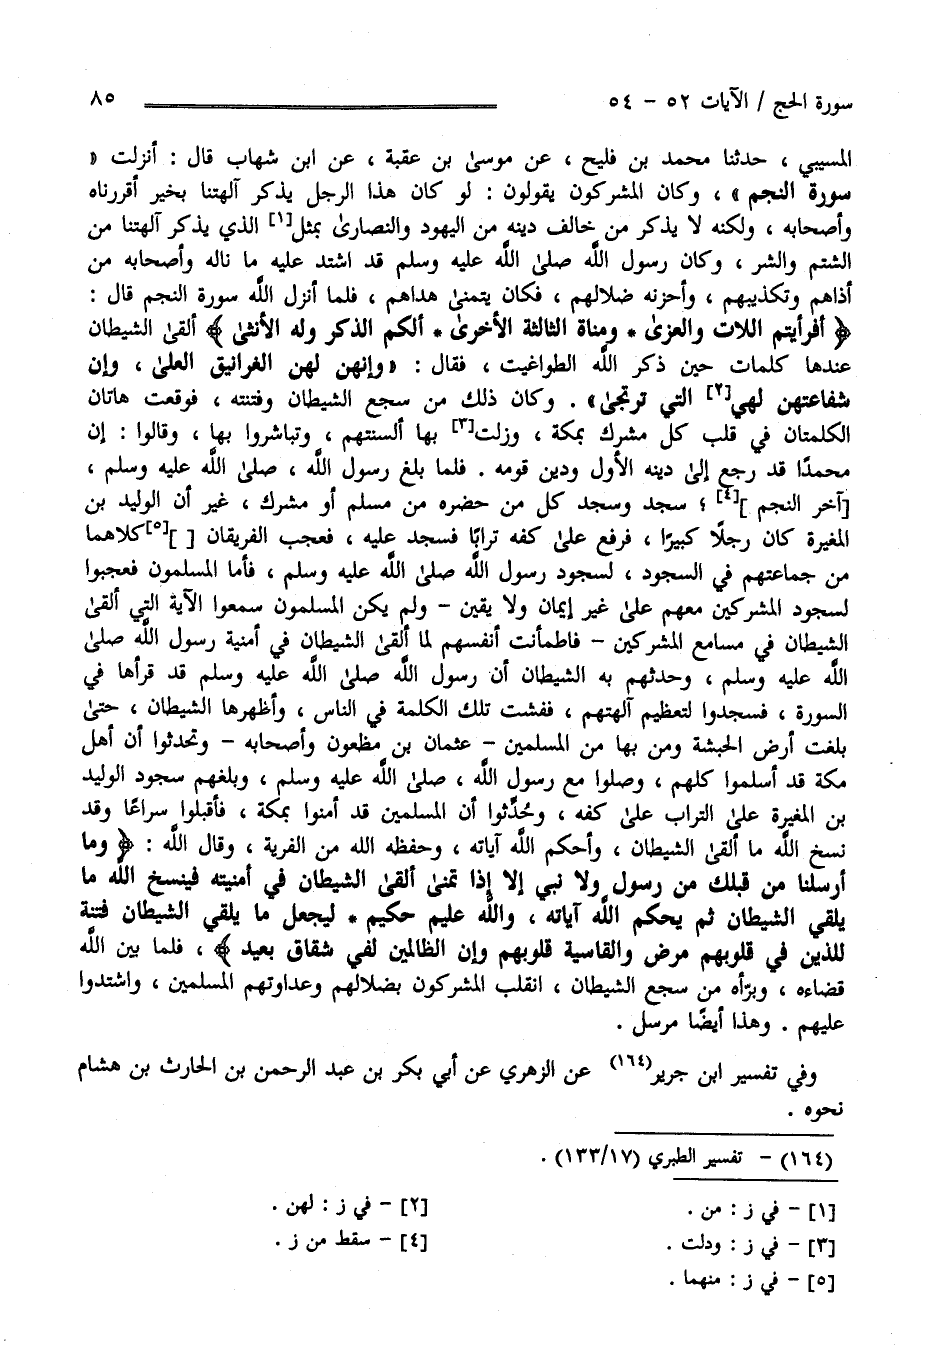 سورة الحج / الآيات ٥٢ - ٥٤ ٨٥
المسيبي ، حدثنا محمد بن فليح ، عن موسىٰ بن عقبة ، عن ابن شهاب قال : أنزلت «
سورة النجم » ، وكان المشركون يقولون : لو كان هذا الرجل يذكر آلهتنا بخير أقررناه
وأصحابه ، ولكنه لا يذكر من خالف دينه من اليهود والنصارىٰ بمثل[١] الذي يذكر آلهتنا من
الشتم والشر ، وكان رسول اللَّه صلىٰ اللَّه عليه وسلم قد اشتد عليه ما ناله وأصحابه من
أذاهم وتكذيبهم ، وأحزنه ضلالهم ، فكان يتمنىٰ هداهم ، فلما أنزل اللَّه سورة النجم قال :
﴿ أفرأيتم اللات والعزىٰ * ومناة الثالثة الأخرىٰ * ألكم الذكر وله الأنثىٰ ﴾ ألقىٰ الشيطان
عندها كلمات حين ذكر اللَّه الطواغيت ، فقال : «وإنهن لهن الغرانيق العلىٰ ، وإن
شفاعتهن لهي[٢] التي ترتجىٰ» . وكان ذلك من سجع الشيطان وفتنته ، فوقعت هاتان
الكلمتان في قلب كل مشرك بمكة ، وزلت[٣] بها ألسنتهم ، وتباشروا بها ، وقالوا : إن
محمدًا قد رجع إلىٰ دينه الأول ودين قومه . فلما بلغ رسول اللَّه ، صلىٰ اللَّه عليه وسلم ،
[آخر النجم ][٤] ؛ سجد وسجد كل من حضره من مسلم أو مشرك ، غير أن الوليد بن
المغيرة كان رجلًا كبيرًا ، فرفع علىٰ كفه ترابًا فسجد عليه ، فعجب الفريقان [ ][٥]كلاهما
من جماعتهم في السجود ، لسجود رسول اللَّه صلىٰ اللَّه عليه وسلم ، فأما المسلمون فعجبوا
لسجود المشركين معهم علىٰ غير إيمان ولا يقين - ولم يكن المسلمون سمعوا الآية التي ألقىٰ
الشيطان في مسامع المشركين - فاطمأنت أنفسهم لما ألقىٰ الشيطان في أمنية رسول اللَّه صلىٰ
اللَّه عليه وسلم ، وحدثهم به الشيطان أن رسول اللَّه صلىٰ اللَّه عليه وسلم قد قرأها في
السورة ، فسجدوا لتعظيم آلهتهم ، ففشت تلك الكلمة في الناس ، وأظهرها الشيطان ، حتىٰ
بلغت أرض الحبشة ومن بها من المسلمين - عثمان بن مظعون وأصحابه - وتحدثوا أن أهل
مكة قد أسلموا كلهم ، وصلوا مع رسول اللَّه ، صلىٰ اللَّه عليه وسلم ، وبلغهم سجود الوليد
بن المغيرة علىٰ التراب علىٰ كفه ، وحُدِّثوا أن المسلمين قد أمنوا بمكة ، فأقبلوا سراعًا وقد
نسخ اللَّه ما ألقىٰ الشيطان ، وأحكم اللَّه آياته ، وحفظه الله من الفرية ، وقال اللَّه : ﴿ وما
أرسلنا من قبلك من رسول ولا نبي إلا إذا تمنىٰ ألقىٰ الشيطان في أمنيته فينسخ اللَّه ما
يلقي الشيطان ثم يحكم اللَّه آياته ، واللَّه عليم حكيم * ليجعل ما يلقي الشيطان فتنة
للذين في قلوبهم مرض والقاسية قلوبهم وإن الظالمين لفي شقاق بعيد ﴾ ، فلما بين اللَّه
قضاءه ، وبرّأه من سجع الشيطان ، انقلب المشركون بضلالهم وعداوتهم المسلمين ، واشتدوا
عليهم . وهذا أيضًا مرسل .
وفي تفسير ابن جرير(١٦٤) عن الزهري عن أبي بكر بن عبد الرحمن بن الحارث بن هشام
نحوه .
(١٦٤) - تفسير الطبري (١٣٣/١٧) .
[١] - في ز : من . [٢] - في ز : لهن .
[٣] - في ز : ودلت . [٤] - سقط من ز .
[٥] - في ز : منهما .